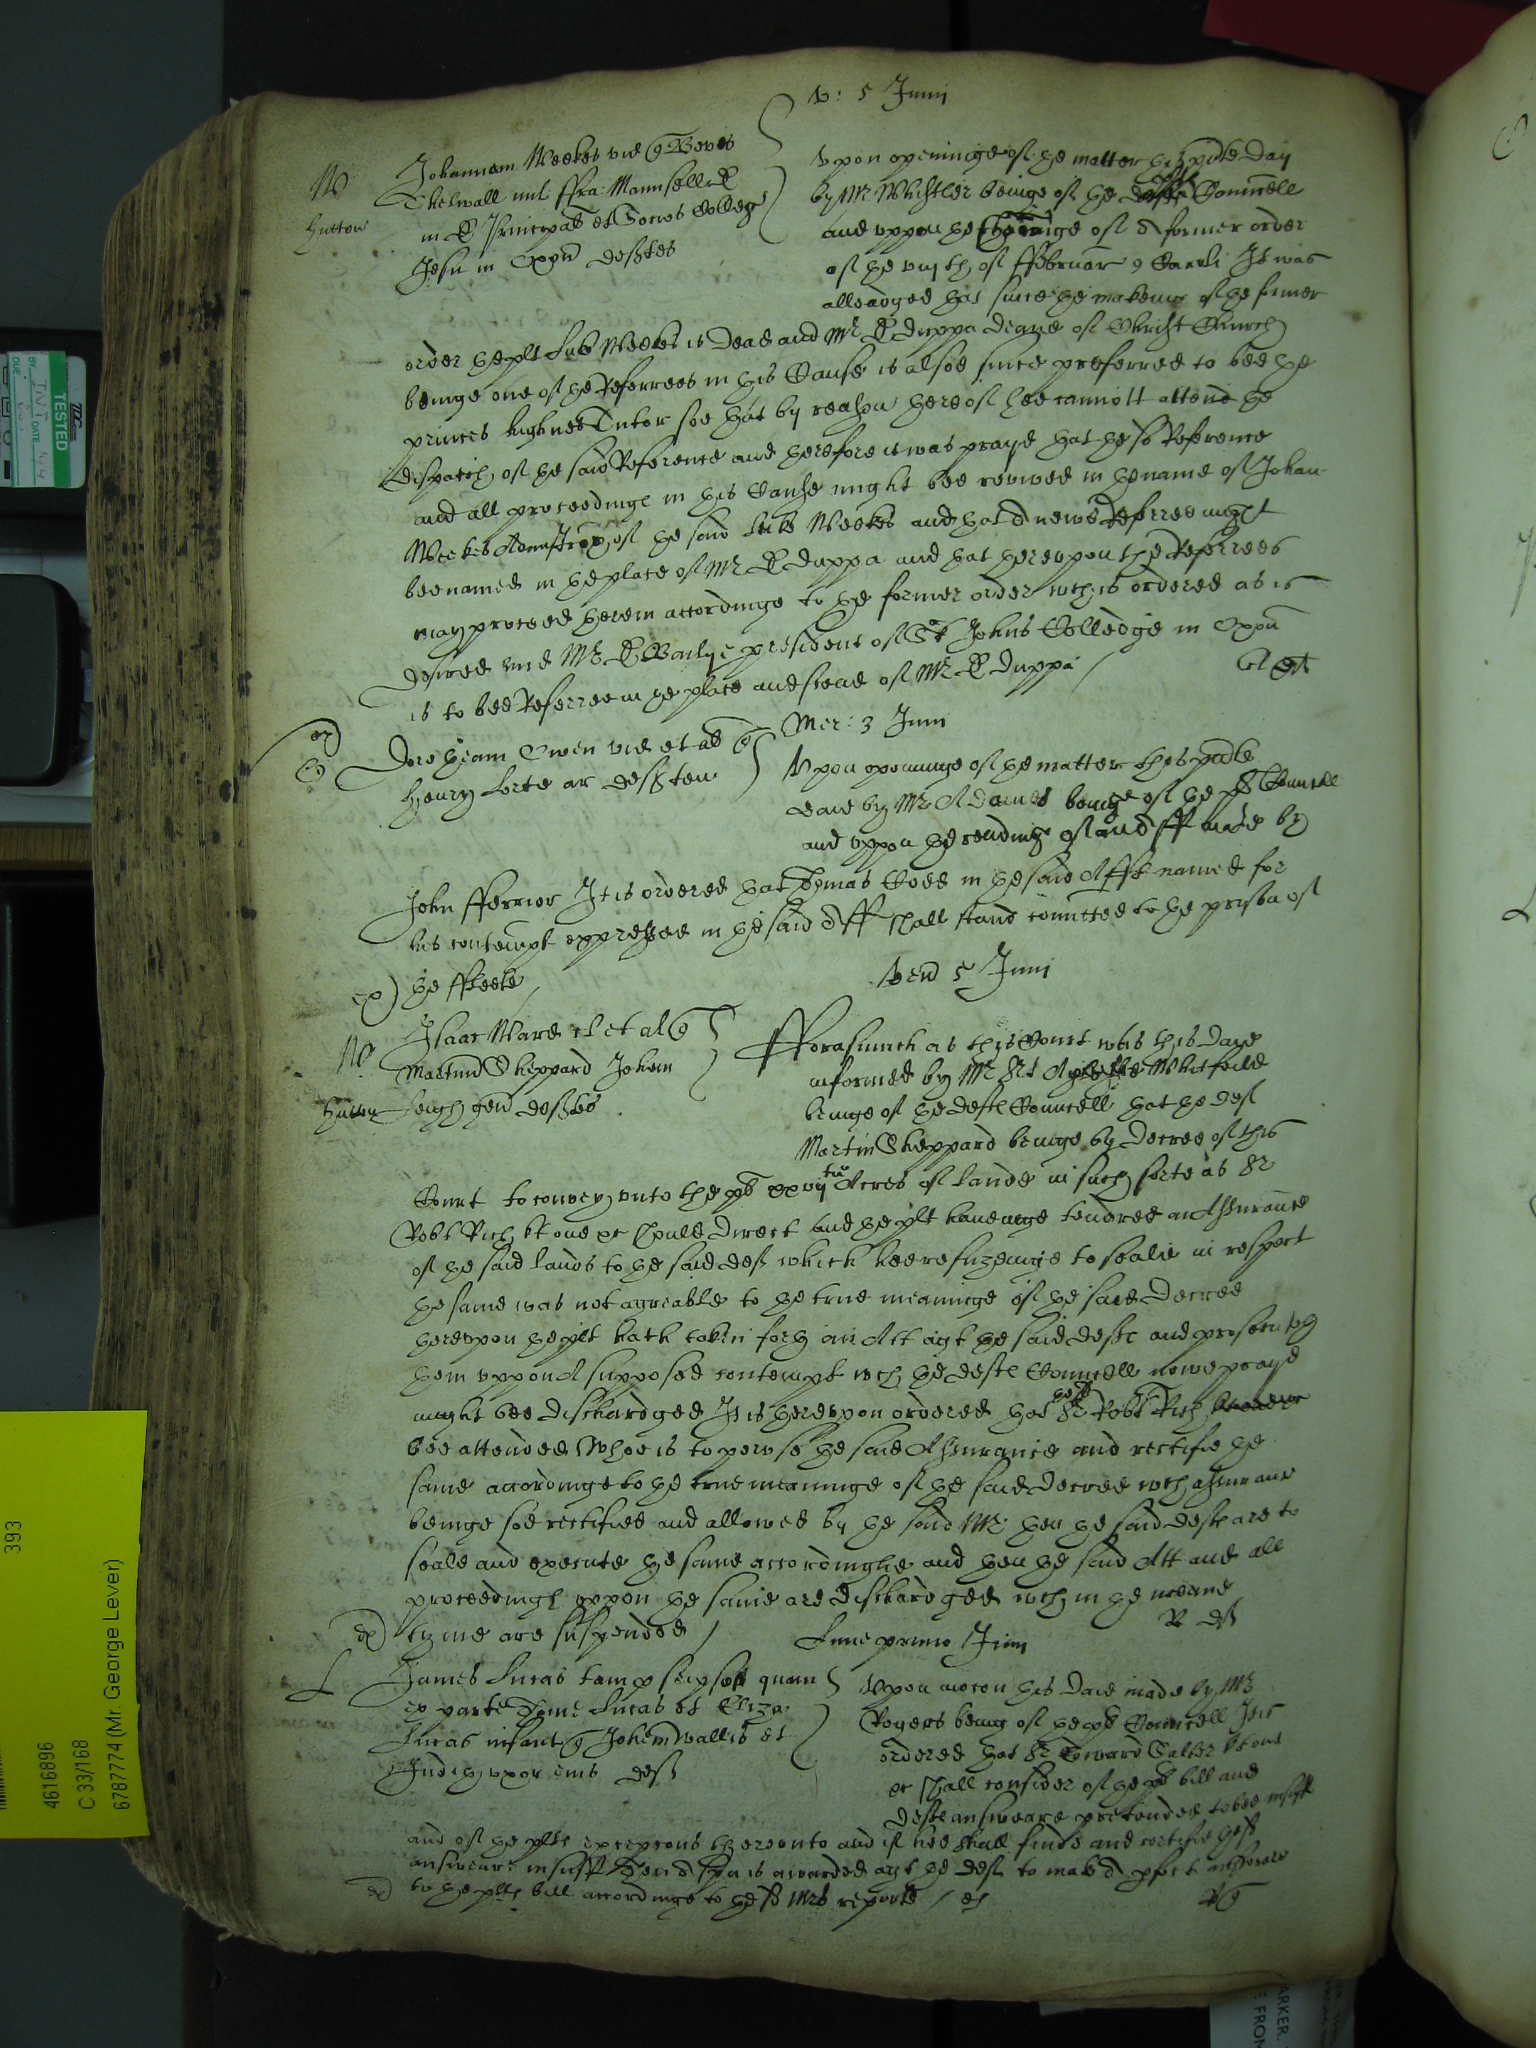 V: 5 Junij
W
Hutton
Johannem Weekes vid q Beves
Thelwall mil ffra: Mannsell
in Principal et Socios Colledge
Jesu in Oxon deftes
Vpon openinge of the matter this pnte day
by Mr Whistler beinge of the Councell
and vppon the readinge of a former order
of the viijth of ffebruar 9 Caroli It was
alleadged that since the makeing of the former
order the plt Luke Weekes is dead and Mr D Duppa deane of Christ Church
beinge one of the Referrees in this Cause is alsoe since preferred to bee the
princes highnes Tutor soe that by reason thereof hee cannott attend the
dispatch of the said Reference and therefore it was prayd that the sd Reference
and all proceedings in this Cause might bee revived in the name of Johan
Weekes Admstrix of the said Luke Weekes and that a newe Referree might
bee named in the place of Mr D Duppa and that therevpon the Referrees
may proceed therein accordinge to the former order wch is ordered as is
desired and Mr D Baylie president of St Johns Colledge in Oxon
is to bee Referree in the place and stead of Mr D Duppa
Mer: 3 Junij
Dorotheam Owen vid et al q
Henry Lorte ar deften
Vpon openinge of the matter this pnte
daie by Mr Adames beinge of the pl Councell
and vppon the readinge of an aff made by
John fferrior It is ordered that Thomas Coes in the said Afft named for
his contempt expressed in the said Aff shall stand comitted to the prison of
ex) the ffleete
Ven 5 Junij
W
Hutton
Isaac Ward et al q
Martin Sheppard Johem
Leigh gen deftes
fforasmuch as this Court was this daye
informed by Mr Whitfeild
beinge of the deftes Councell that the def
Martin Sheppard beinge by decree of this
Court to convey vnto the plt xxvij Acres of lande in such sorte as Sr
Robt Rich kt one etc should direct and the plt haueinge tendred an Assurance
of the said lands to the said def which hee refuzeinge to seale in respect
the same was not agreable to the true meaninge of the said decree
therevpon the plt hath taken forth an Att agt the said defte and prosecuteth
him vppon A supposed contempt wch the deftes Councell nowe prayd
might bee dischardged It is therevpon ordered that the sd Sr Robt Rich
bee attended Whoe is to peruse the said Assurance and rectifie the
same accordinge to the true meaninge of the said decree wch assurance
beinge soe rectified and allowed by the said Mr then the said defts are to
seale and execute the same accordinglie and then the said Att and all
proceedings vppon the same are dischardged wch in the meane
ex) tyme are suspended
Lune primo Junij
L
James Lucas tam p seipso quam
ex parte Lucas et Eliza:
Lucas infant q Johem Wallis et
Judith vxor eius def
Vpon mocon this daie made by Mr
Rogers being of the plt Councell It is
ordered that Sr Edward Salter kt one
etc shall consider of the plt bill and
defte answeare pretended to bee insuff
and of the plts excepcons therevnto and if hee shall finde and certifie the sd
answeare insuff then a spa is awarded agt the def to make a pfect answeare
ex) to the plts bill accordinge to the sd Mrs reporte
TESTED
393
4616896
C 33/168
6787774 (Mr. George Lever)